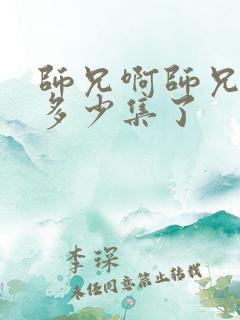 師兄啊師兄
多少集了
李琛
未经同意禁止转载